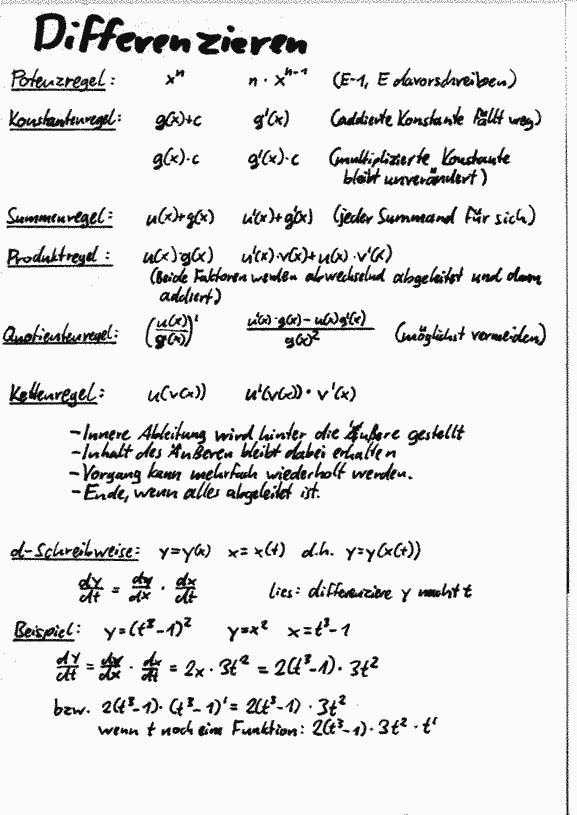 Differenzieren
Potenzregel: xⁿ n · xⁿ⁻¹ (E-1, E davorschreiben)
Konstantenregel: g(x)+c g'(x) (addierte Konstante fällt weg)
g(x)·c g'(x)·c (multiplizierte Konstante
bleibt unverändert)
Summenregel: u(x)+g(x) u'(x)+g'(x) (jeder Summand für sich)
Produktregel: u(x)·g(x) u'(x)·v(x)+u(x)·v'(x)
(Beide Faktoren werden abwechselnd abgeleitet und dann
addiert)
Quotientenregel: (u(x)/g(x))' (u'(x)·g(x)-u(x)g'(x))/g(x)² (möglichst vermeiden)
Kettenregel: u(v(x)) u'(v(x))·v'(x)
-Innere Ableitung wird hinter die Äußere gestellt
-Inhalt des Äußeren bleibt dabei erhalten
-Vorgang kann mehrfach wiederholt werden.
-Ende, wenn alles abgeleitet ist.
d-Schreibweise: y=y(x) x=x(t) d.h. y=y(x(t))
dy/dt = dy/dx · dx/dt lies: differenziere y nach t
Beispiel: y=(t³-1)² y=x² x=t³-1
dy/dt = dy/dx · dx/dt = 2x · 3t² = 2(t³-1) · 3t²
bzw. 2(t³-1)·(t³-1)' = 2(t³-1) · 3t²
wenn t noch eine Funktion: 2(t³-1)·3t²·t'